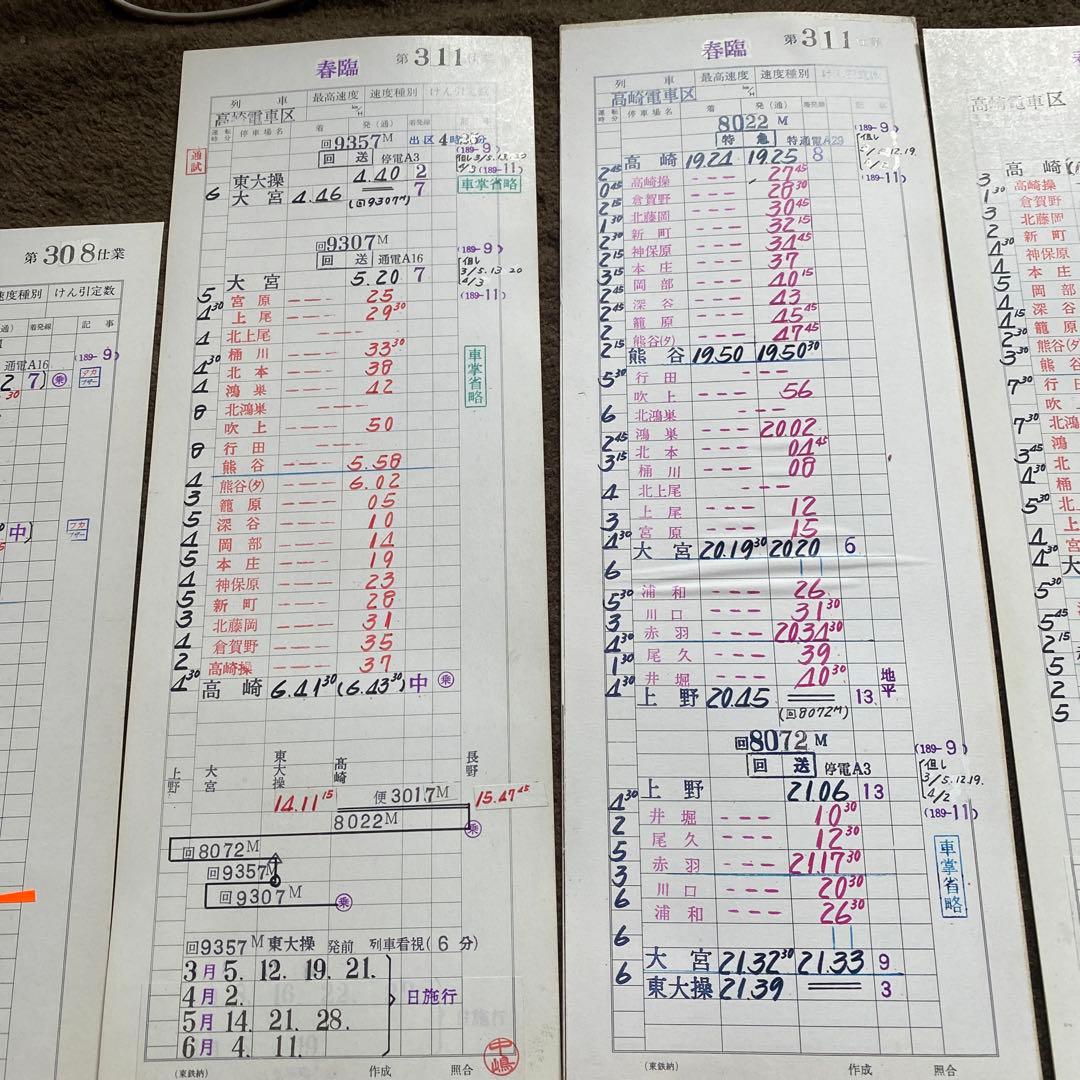 第308仕業
速度種別 けん引定数
着発線 記事
通電A16
(189-9)
7)
乗
マカ
ブザー
中)
春臨
第311仕業
列車 最高速度 速度種別 けん引定数
高崎電車区
運転時分 停車場名 着 発(通) 着発線 記事
回9357M 出区 4時
通試
回送 停電A3
(189-9)
(189-11)
東大操 4.40 2
6 大宮 4.46 (回9307M) 7
車掌省略
回9307M
回送 通電A16
(189-9)
但し
3/5.13 20
4/3
(189-11)
大宮 5.20 7
5 宮原 25
4 30 上尾 29 30
4 北上尾
桶川 33 30
4 30 北本 38
4 鴻巣 42
8 北鴻巣
吹上 50
8 行田
熊谷 5.58
4 熊谷(タ) 6.02
3 籠原 05
5 深谷 10
4 岡部 14
5 本庄 19
4 神保原 23
5 新町 28
3 北藤岡 31
4 倉賀野 35
2 高崎操 37
4 30 高崎 6.41 30 (6.43 30) 中 乗
車掌省略
上野 大宮 東大操 高崎 長野
14.11 15 便3017M 15.47 45
8022M 乗
回8072M
回9357M
回9307M 乗
回9357M東大操 発前 列車看視(6分)
3月 5. 12. 19. 21.
4月 2.
5月 14. 21. 28.
6月 4. 11.
日施行
(東鉄納) 作成 照合
中嶋
春臨
第311仕業
列車 最高速度 速度種別 けん引定数
km/H
高崎電車区
運転時分 停車場名 着 発(通) 着発線 記事
8022M
特急 特通電A29
(189-9)
但し
(189-11)
高崎 19.24 19.25 8
2 45 高崎操 27 45
0 45 倉賀野 28 30
2 15 北藤岡 30 45
1 30 新町 32 15
2 30 神保原 34 45
2 15 本庄 37
3 15 岡部 40 15
2 45 深谷 43
2 45 籠原 45 45
2 熊谷(タ) 47 45
2 15 熊谷 19.50 19.50 30
5 30 行田
吹上 56
6 北鴻巣
鴻巣 20.02
2 45 北本 04 45
3 15 桶川 08
4 北上尾
上尾 12
3 宮原 15
4 30 大宮 20.19 30 20 20 6
6
浦和 26
5 30 川口 31 30
3 赤羽 20.34 30
4 30 尾久 39
1 30 井堀 40 30
4 30 上野 20.45 13 地平
(回8072M)
回8072M
回送 停電A3
(189-9)
但し
3/5.12.19.
4/2
(189-11)
上野 21.06 13
4 30 井堀 10 30
2 尾久 12 30
5 赤羽 21.17 30
3 川口 20 30
6 浦和 26 30
6 大宮 21.32 30 21.33 9
6 東大操 21.39 3
車掌省略
(東鉄納) 作成 照合
高崎電車区
停車場名
高崎
高崎操
倉賀野
北藤岡
新町
神保原
本庄
岡部
深谷
籠原
熊谷(タ)
熊谷
行田
吹
北鴻
鴻
北
桶
北
上
宮
大